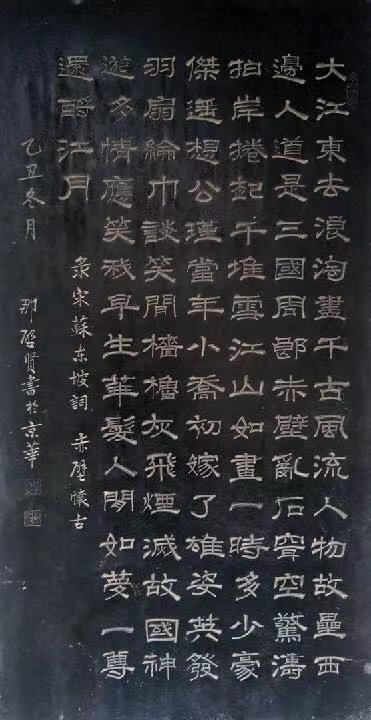 大江東去浪淘盡千古風流人物故壘西
邊人道是三國周郎赤壁亂石穿空驚濤
拍岸捲起千堆雪江山如畫一時多少豪
傑遥想公瑾當年小喬初嫁了雄姿英發
羽扇綸巾談笑間檣櫓灰飛煙滅故國神
遊多情應笑我早生華髮人間如夢一尊
還酹江月
录宋蘇东坡詞 赤壁懷古
乙丑冬月 那啓賢書於京華